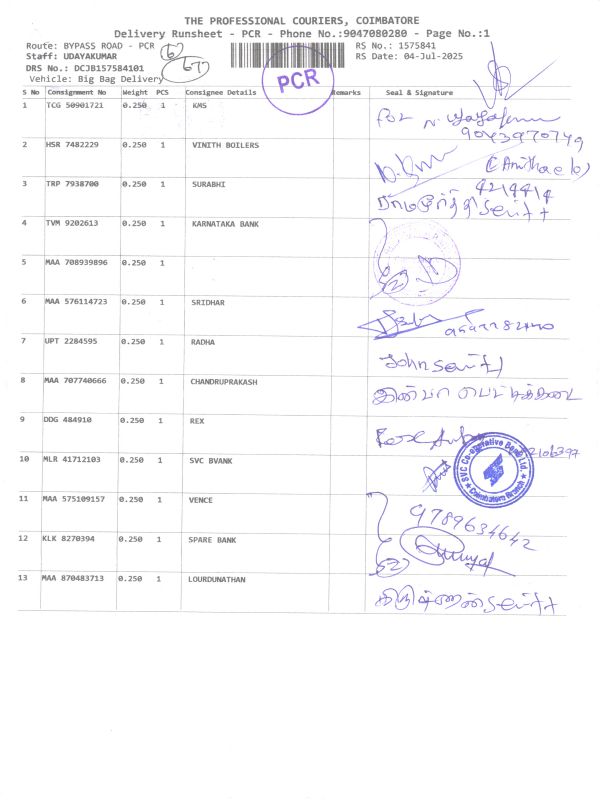 THE PROFESSIONAL COURIERS, COIMBATORE
Delivery Runsheet - PCR - Phone No.:9047080280 - Page No.:1
Route: BYPASS ROAD - PCR
Staff: UDAYAKUMAR
DRS No.: DCJB157584101
Vehicle: Big Bag Delivery
6
67
PCR
RS No.: 1575841
RS Date: 04-Jul-2025
S No Consignment No Weight PCS Consignee Details Remarks Seal & Signature
1 TCG 50901721 0.250 1 KMS
9043970749
2 HSR 7482229 0.250 1 VINITH BOILERS
3 TRP 7938700 0.250 1 SURABHI
4 TVM 9202613 0.250 1 KARNATAKA BANK
5 MAA 708939896 0.250 1
6 MAA 576114723 0.250 1 SRIDHAR
7 UPT 2284595 0.250 1 RADHA
John
8 MAA 707740666 0.250 1 CHANDRUPRAKASH
9 DDG 484910 0.250 1 REX
10 MLR 41712103 0.250 1 SVC BVANK
SVC Co-operative Bank Ltd.
Coimbatore Branch
11 MAA 575109157 0.250 1 VENCE
9789634642
12 KLK 8270394 0.250 1 SPARE BANK
13 MAA 870483713 0.250 1 LOURDUNATHAN